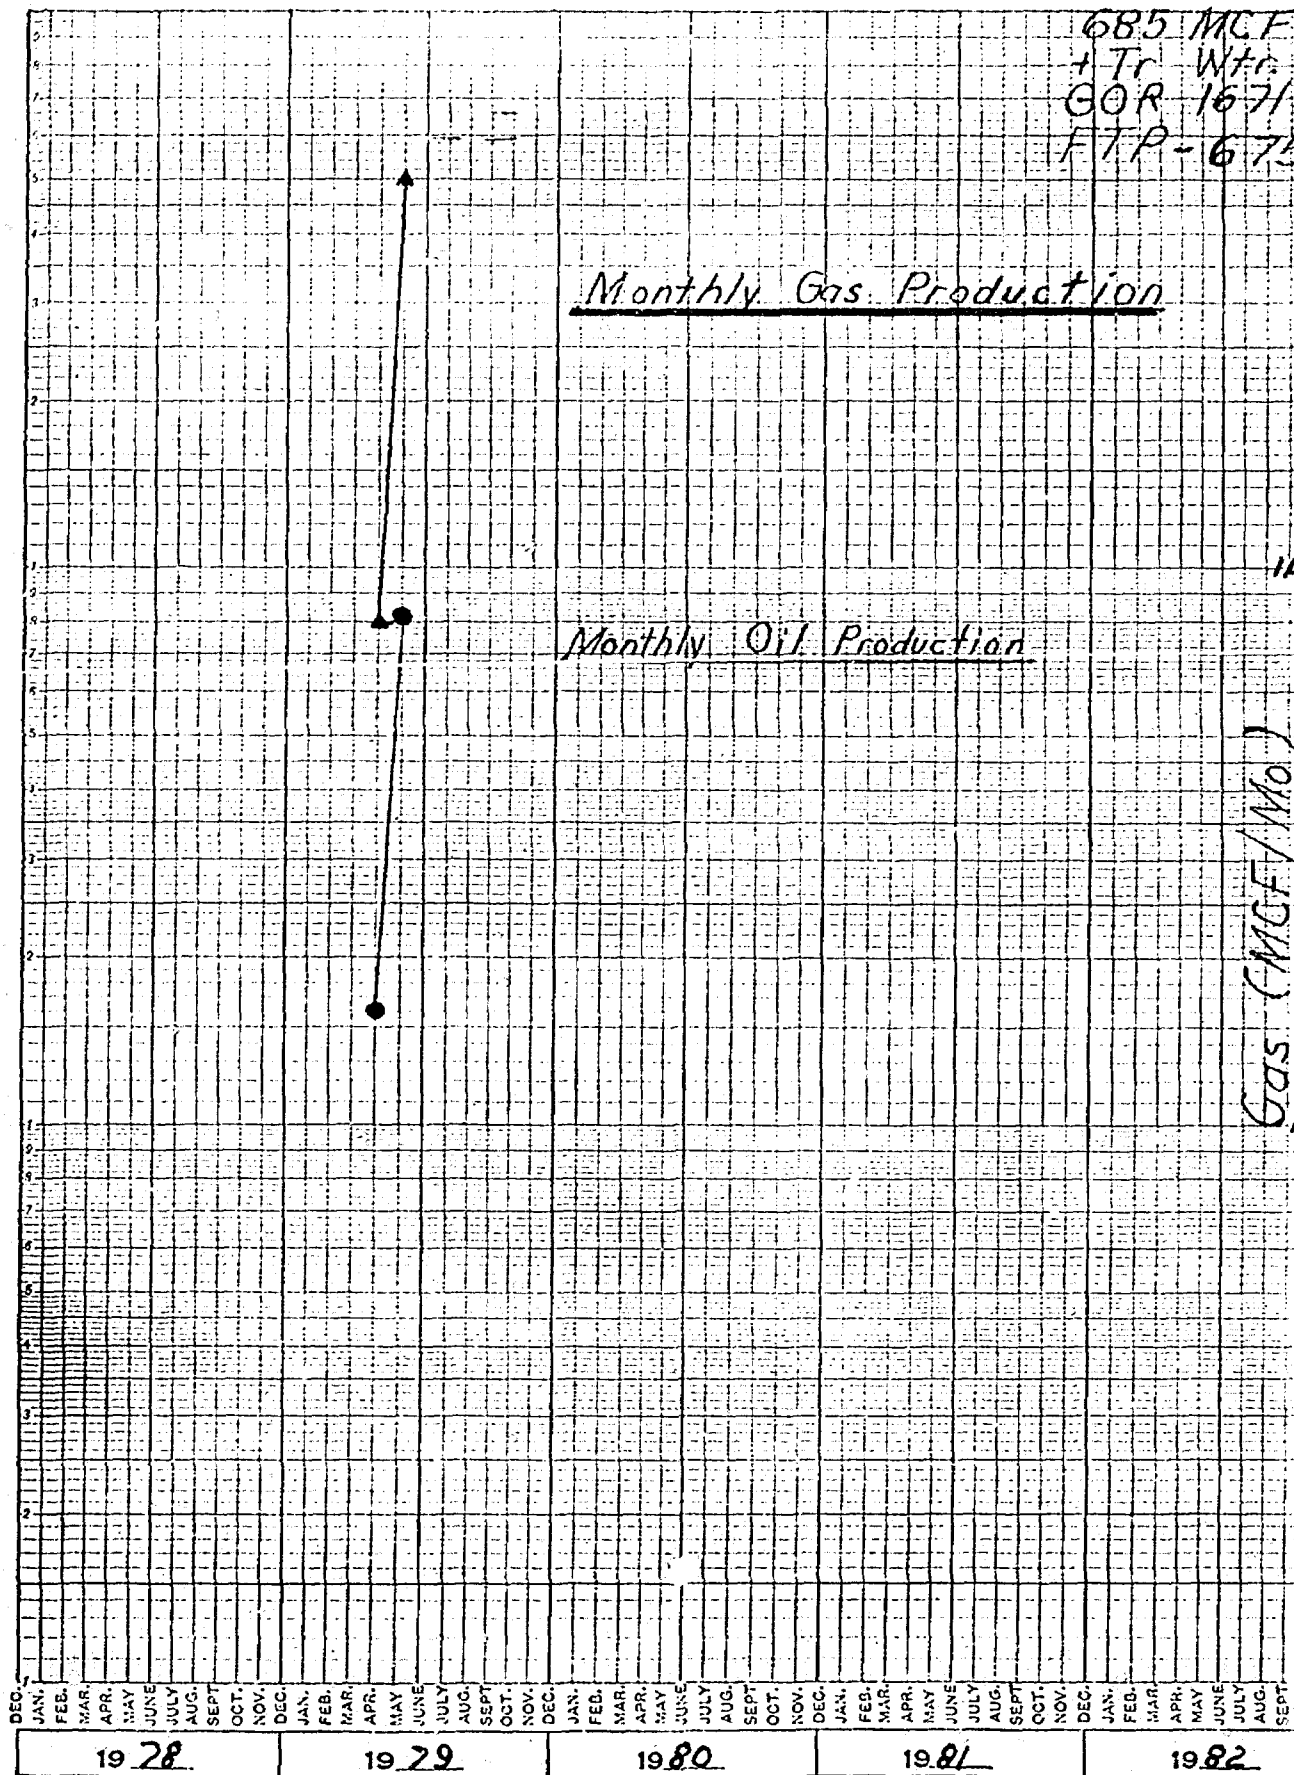 685 MCF
+ Tr Wtr.
GOR 1671
FTP - 675
Monthly Gas Production
Monthly Oil Production
Gas (MCF/Mo)
9
8
7
6
5
4
3
2
1
9
8
7
6
5
4
3
2
1
9
8
7
6
5
4
3
2
1
DEC. JAN. FEB. MAR. APR. MAY JUNE JULY AUG. SEPT OCT. NOV. DEC. JAN. FEB. MAR. APR. MAY JUNE JULY AUG. SEPT OCT. NOV. DEC. JAN. FEB. MAR. APR. MAY JUNE JULY AUG. SEPT OCT. NOV. DEC. JAN. FEB. MAR. APR. MAY JUNE JULY AUG. SEPT OCT. NOV. DEC. JAN. FEB. MAR. APR. MAY JUNE JULY AUG. SEPT
1978 1979 1980 1981 1982